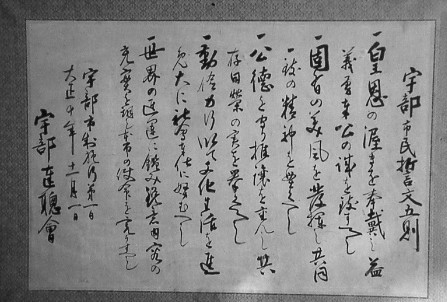 宇部市民誓文五則
一皇恩の渥きを奉戴し益
義勇奉公の誠を致すへし
一固有の美風を発揮し共同
一致の精神を養ふへし
一公徳を守り推譲を重んし共
存同栄の実を挙くへし
一勤倹力行以て文化生活を進
め大に社会奉仕に努むへし
一世界の進運に鑑み内容の
充実を図り市の使命を完ふすへし
宇部市制施行第一日
大正十年十一月一日
宇部達聰會